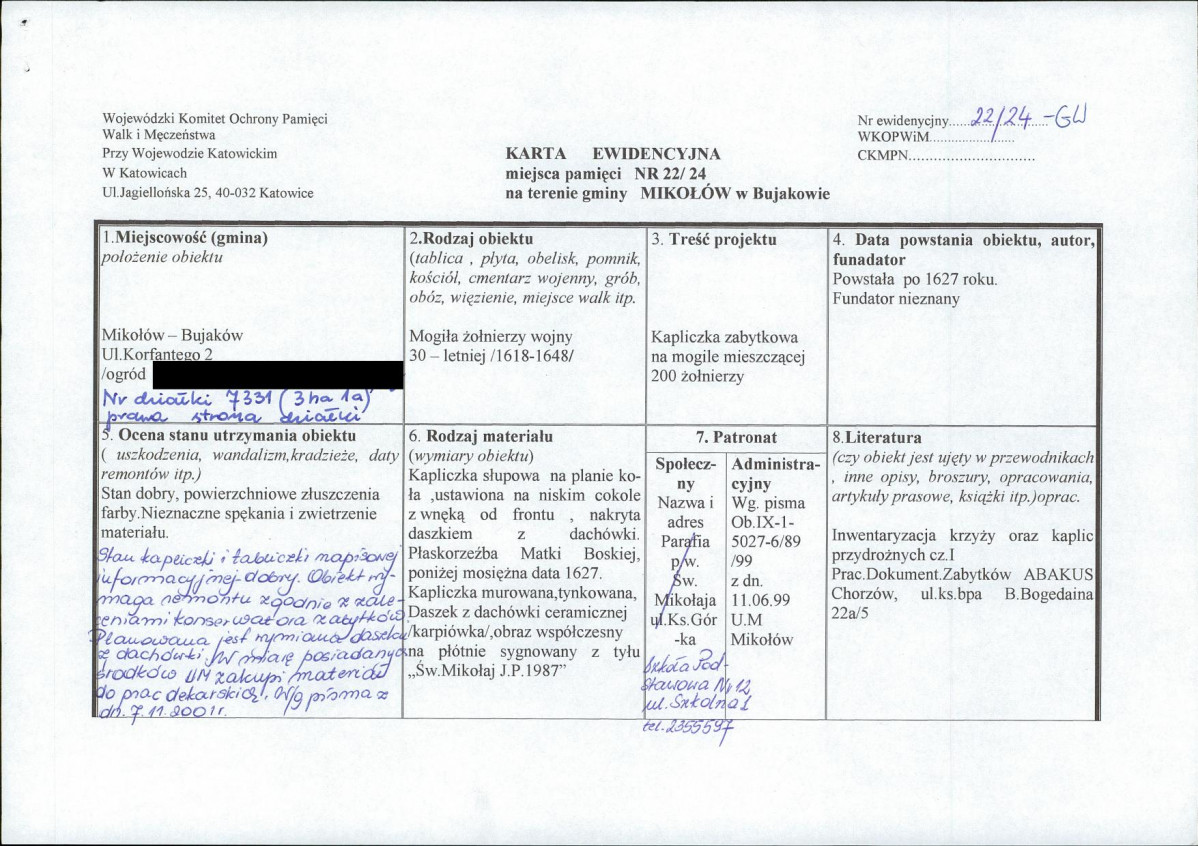 Wojewódzki Komitet Ochrony Pamięci
Walk i Męczeństwa
Przy Wojewodzie Katowickim
W Katowicach
Ul.Jagiellońska 25, 40-032 Katowice
KARTA EWIDENCYJNA
miejsca pamięci NR 22/ 24
na terenie gminy MIKOŁÓW w Bujakowie
Nr ewidenycjny.....22/24 -GW
WKOPWiM......................
CKMPN................................
1.Miejscowość (gmina)
położenie obiektu
Mikołów – Bujaków
Ul.Korfantego 2
/ogród
Nr działki 7331 (3 ha 1a)
prawa strona działki
2.Rodzaj obiektu
(tablica , płyta, obelisk, pomnik,
kościół, cmentarz wojenny, grób,
obóz, więzienie, miejsce walk itp.
Mogiła żołnierzy wojny
30 – letniej /1618-1648/
3. Treść projektu
Kapliczka zabytkowa
na mogile mieszczącej
200 żołnierzy
4. Data powstania obiektu, autor,
funadator
Powstała po 1627 roku.
Fundator nieznany
5. Ocena stanu utrzymania obiektu
( uszkodzenia, wandalizm,kradzieże, daty
remontów itp.)
Stan dobry, powierzchniowe złuszczenia
farby.Nieznaczne spękania i zwietrzenie
materiału.
Stan kapliczki i tabliczki napisowej
informacyjnej dobry. Obiekt wy-
maga remontu zgodnie z zale-
ceniami konserwatora zabytków.
Planowana jest wymiana daszku
z dachówki. W miarę posiadanych
środków UM zakupi materiał
do prac dekarskich. W/g pisma z
dn. 7.11.2001r.
6. Rodzaj materiału
(wymiary obiektu)
Kapliczka słupowa na planie ko-
ła ,ustawiona na niskim cokole
z wnęką od frontu , nakryta
daszkiem z dachówki.
Płaskorzeźba Matki Boskiej,
poniżej mosiężna data 1627.
Kapliczka murowana,tynkowana,
Daszek z dachówki ceramicznej
/karpiówka/,obraz współczesny
na płótnie sygnowany z tyłu
„Św.Mikołaj J.P.1987”
7. Patronat
Społecz-
ny
Nazwa i
adres
Parafia
p/w.
Św.
Mikołaja
ul.Ks.Gór
-ka
Szkoła Pod-
stawowa Nr 12
ul. Szkolna 1
tel. 2355597
Administra-
cyjny
Wg. pisma
Ob.IX-1-
5027-6/89
/99
z dn.
11.06.99
U.M
Mikołów
8.Literatura
(czy obiekt jest ujęty w przewodnikach
, inne opisy, broszury, opracowania,
artykuły prasowe, książki itp.)oprac.
Inwentaryzacja krzyży oraz kaplic
przydrożnych cz.I
Prac.Dokument.Zabytków ABAKUS
Chorzów, ul.ks.bpa B.Bogedaina
22a/5